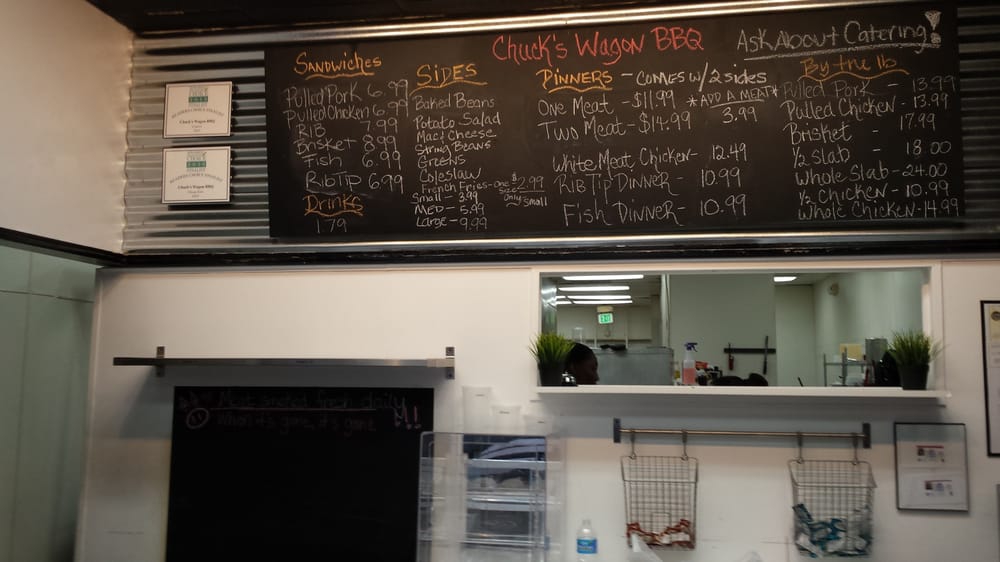 Chuck's Wagon BBQ
Ask About Catering!
Sandwiches
Pulled Pork 6.99
Pulled Chicken 6.99
RIB 7.99
Brisket 8.99
Fish 6.99
Rib Tip 6.99
Drinks
1.79
SIDES
Baked Beans
Potato Salad
Mac & Cheese
String Beans
Greens
Coleslaw
French Fries - One Size Only $2.99 Small
Small - 3.99
MED - 5.99
Large - 9.99
Dinners - Comes w/ 2 sides
One Meat - $11.99
Two Meat - $14.99
*ADD A MEAT*
3.99
White Meat Chicken - 12.49
Rib Tip Dinner - 10.99
Fish Dinner - 10.99
By the lb
Pulled Pork - 13.99
Pulled Chicken 13.99
Brisket - 17.99
1/2 slab - 18.00
Whole Slab - 24.00
1/2 Chicken - 10.99
Whole Chicken - 14.99
Chuck's Wagon BBQ
Chuck's Wagon BBQ
EXIT
Meat smoked fresh daily
When it's gone, it's gone !!